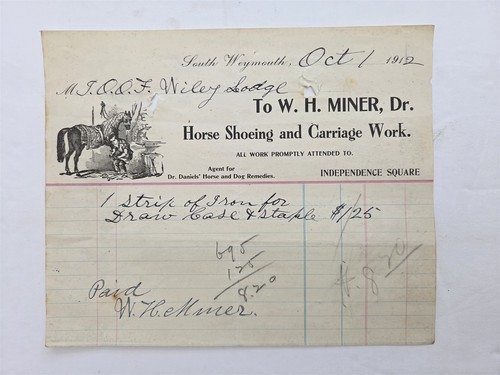 South Weymouth, Oct 1 1912
M I.O.O.F. Wiley Lodge
To W. H. MINER, Dr.
Horse Shoeing and Carriage Work.
ALL WORK PROMPTLY ATTENDED TO.
Agent for
Dr. Daniels' Horse and Dog Remedies.
INDEPENDENCE SQUARE
1 Strip of Iron for
Draw Case & Staple $1.25
695
125
8.20
8.20
Paid
W. H. Miner.